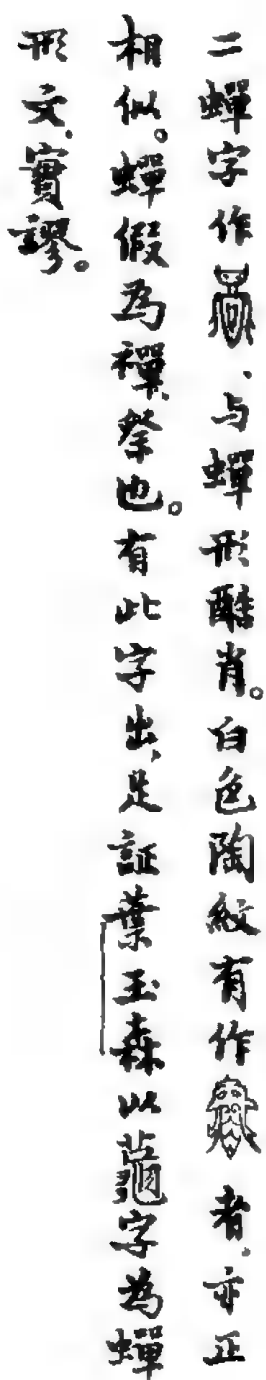 二蟬字作、与蟬形酷肖。白色陶紋有作者，亦正
相似。蟬假為禪，祭也。有此字出，足証葉玉森以字為蟬
形文，實謬。